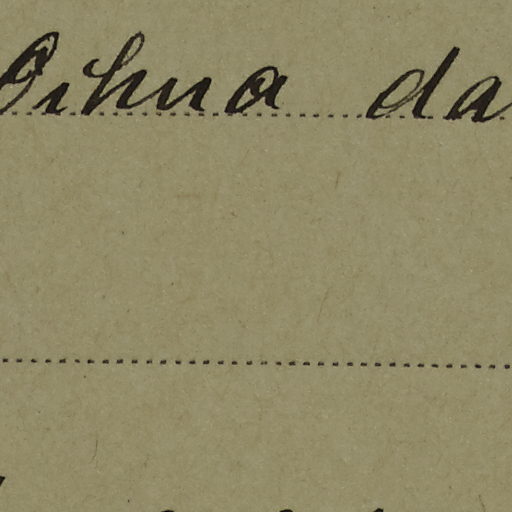 Oihua da